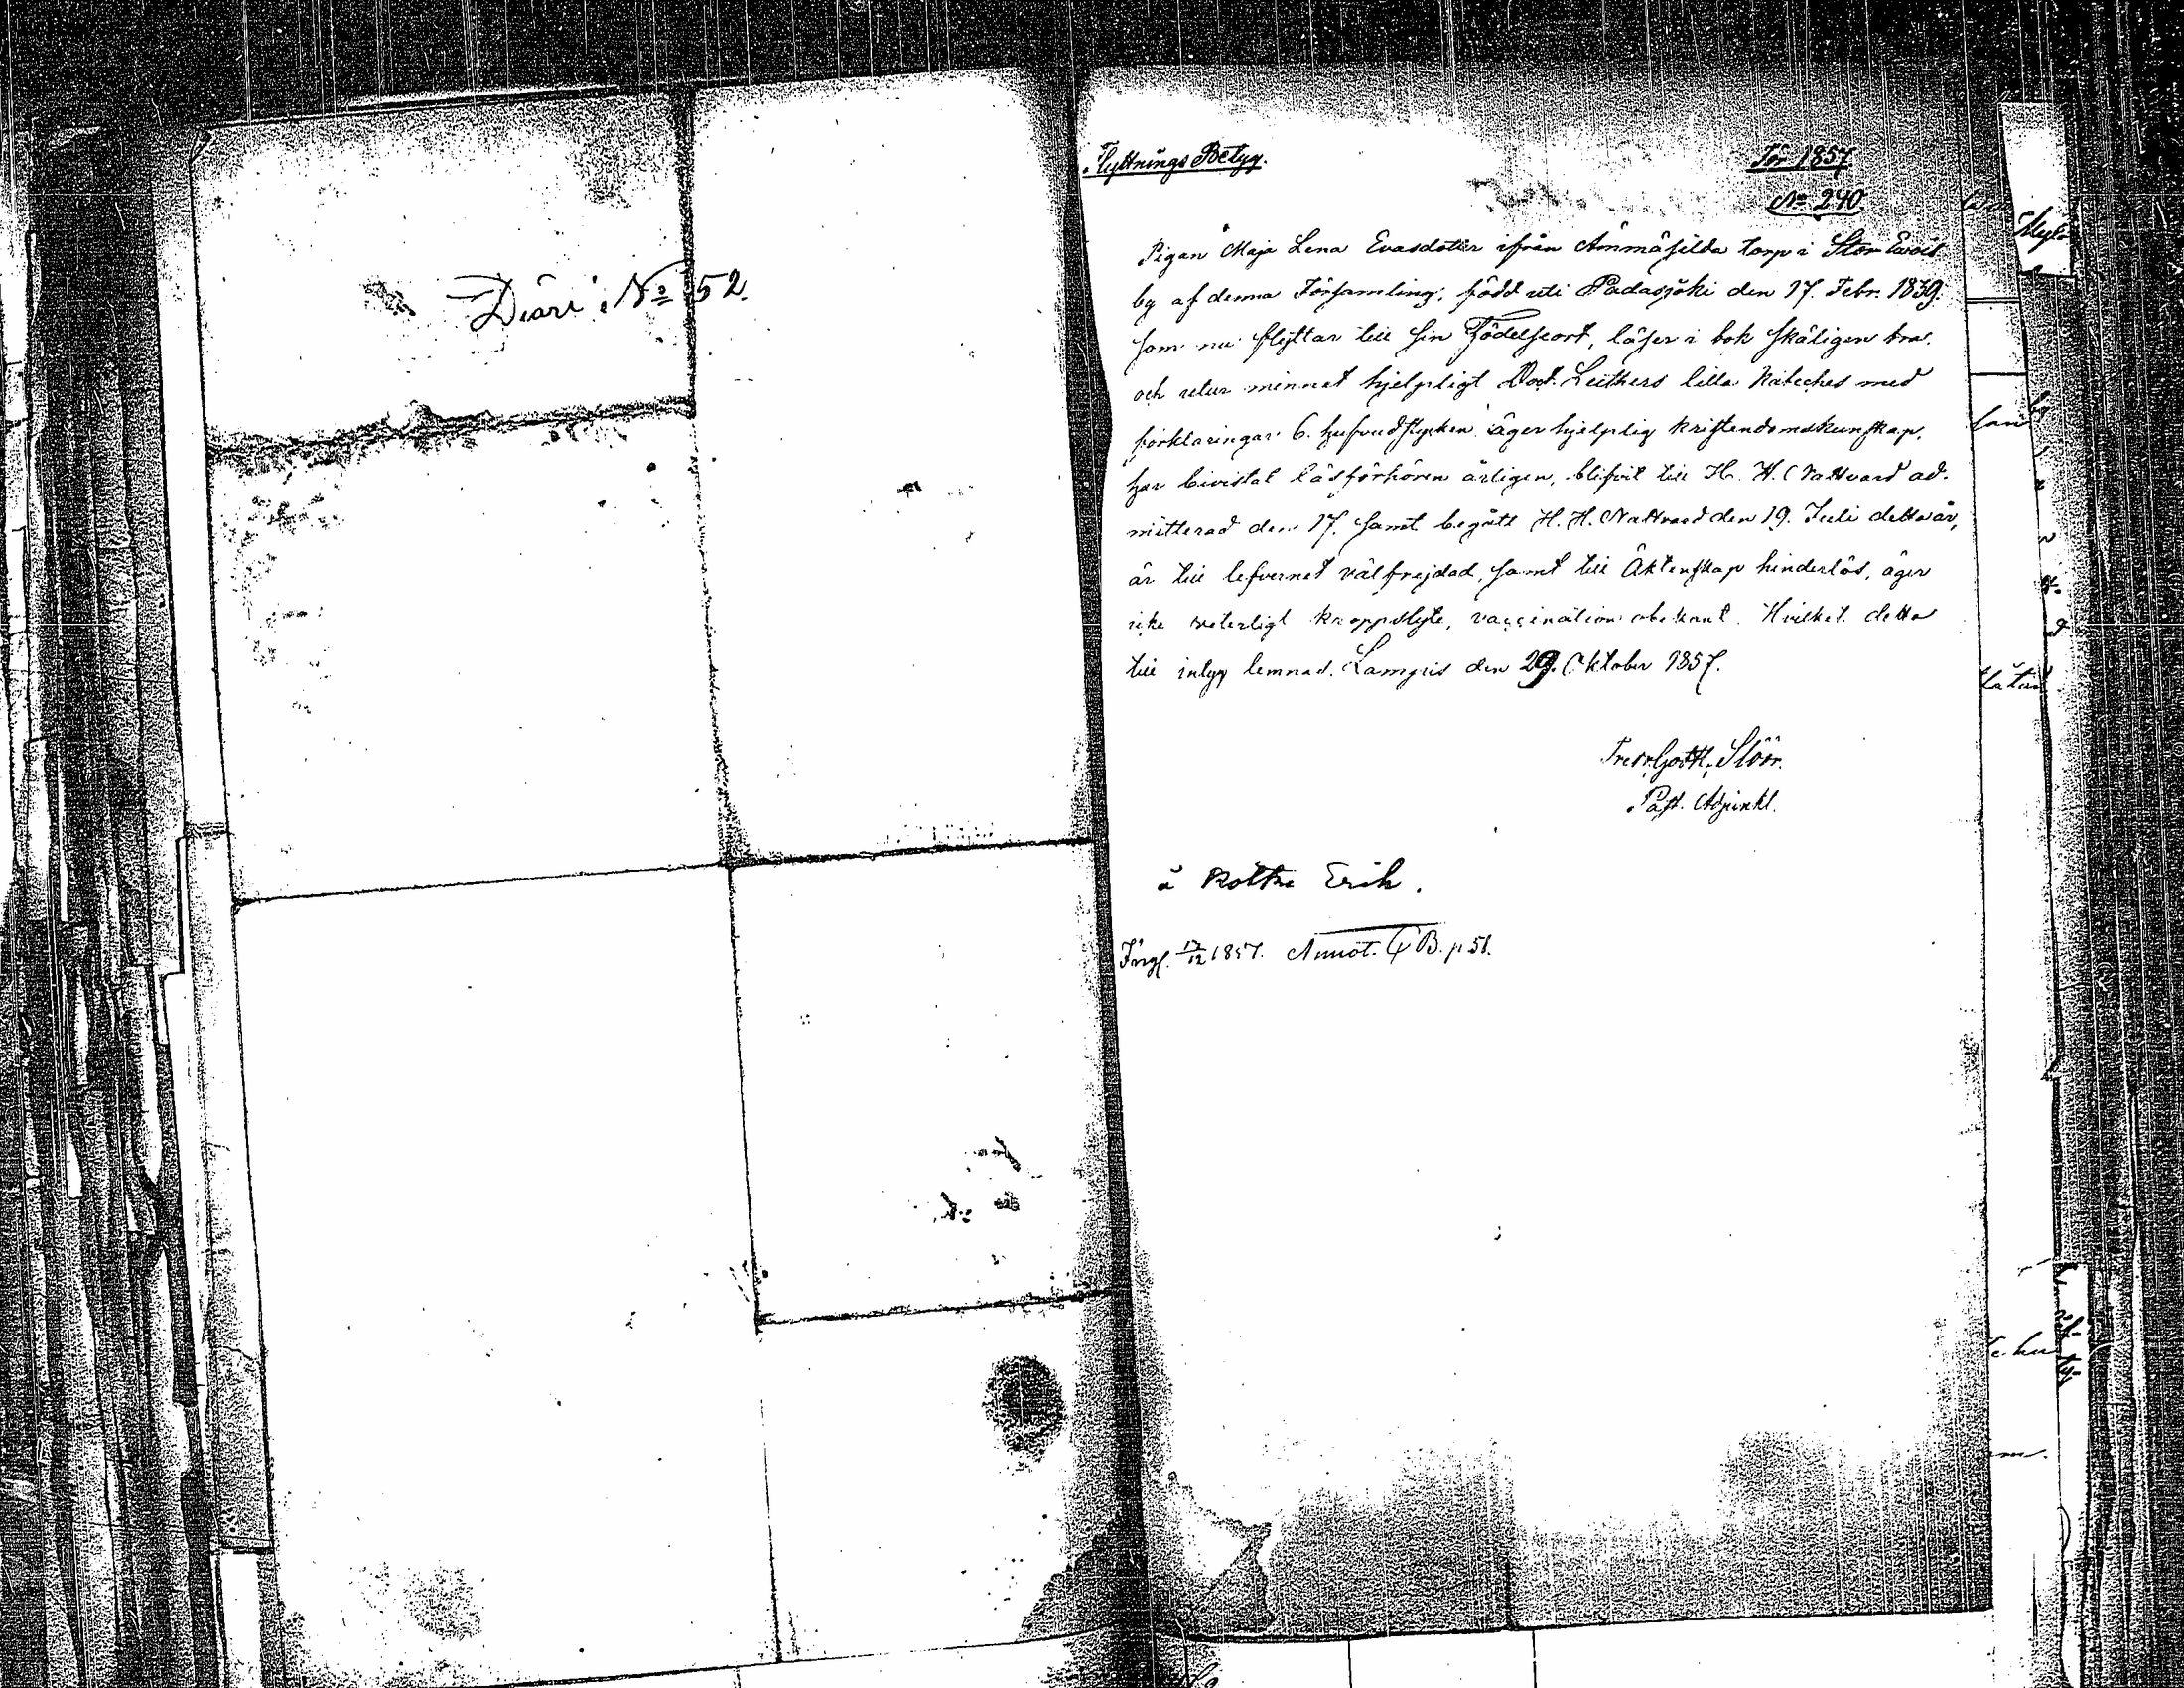 Diari No 52.
Flyttnings Betyg.
För 1857
No 240
Pigan Maja Lena Evasdotter ifrån Ämmäsilda torp i Stor Evois
by af denna Församling, född uti Padasjoki den 17. Febr. 1839.
som nu flyttar till sin Födelseort, läser i bok skäligen bra,
och utur minnet hjelpligt Doct. Luthers lilla Kateches med
förklaringar 6. hufvudstycken äger hjelplig kristendomskunskap,
har bevistat läsförhören årligen, blifvit till H. H. Nattvard ad-
mitterad den 17. samt begått H. H. Nattvard den 19. Juli detta år,
är till lefvernet välfrejdad, samt till Äktenskap hinderlös, äger
icke veterligt kroppslyte, vaccination obekant. Hvilket detta
till intyg lemnad. Lampis den 29. Oktober 1857.
Fredr. Gotth. Stöör.
Past. Adjunkt.
å Rottu Erik.
Ingf. 12/12 1857. Annot. C B. p 51.